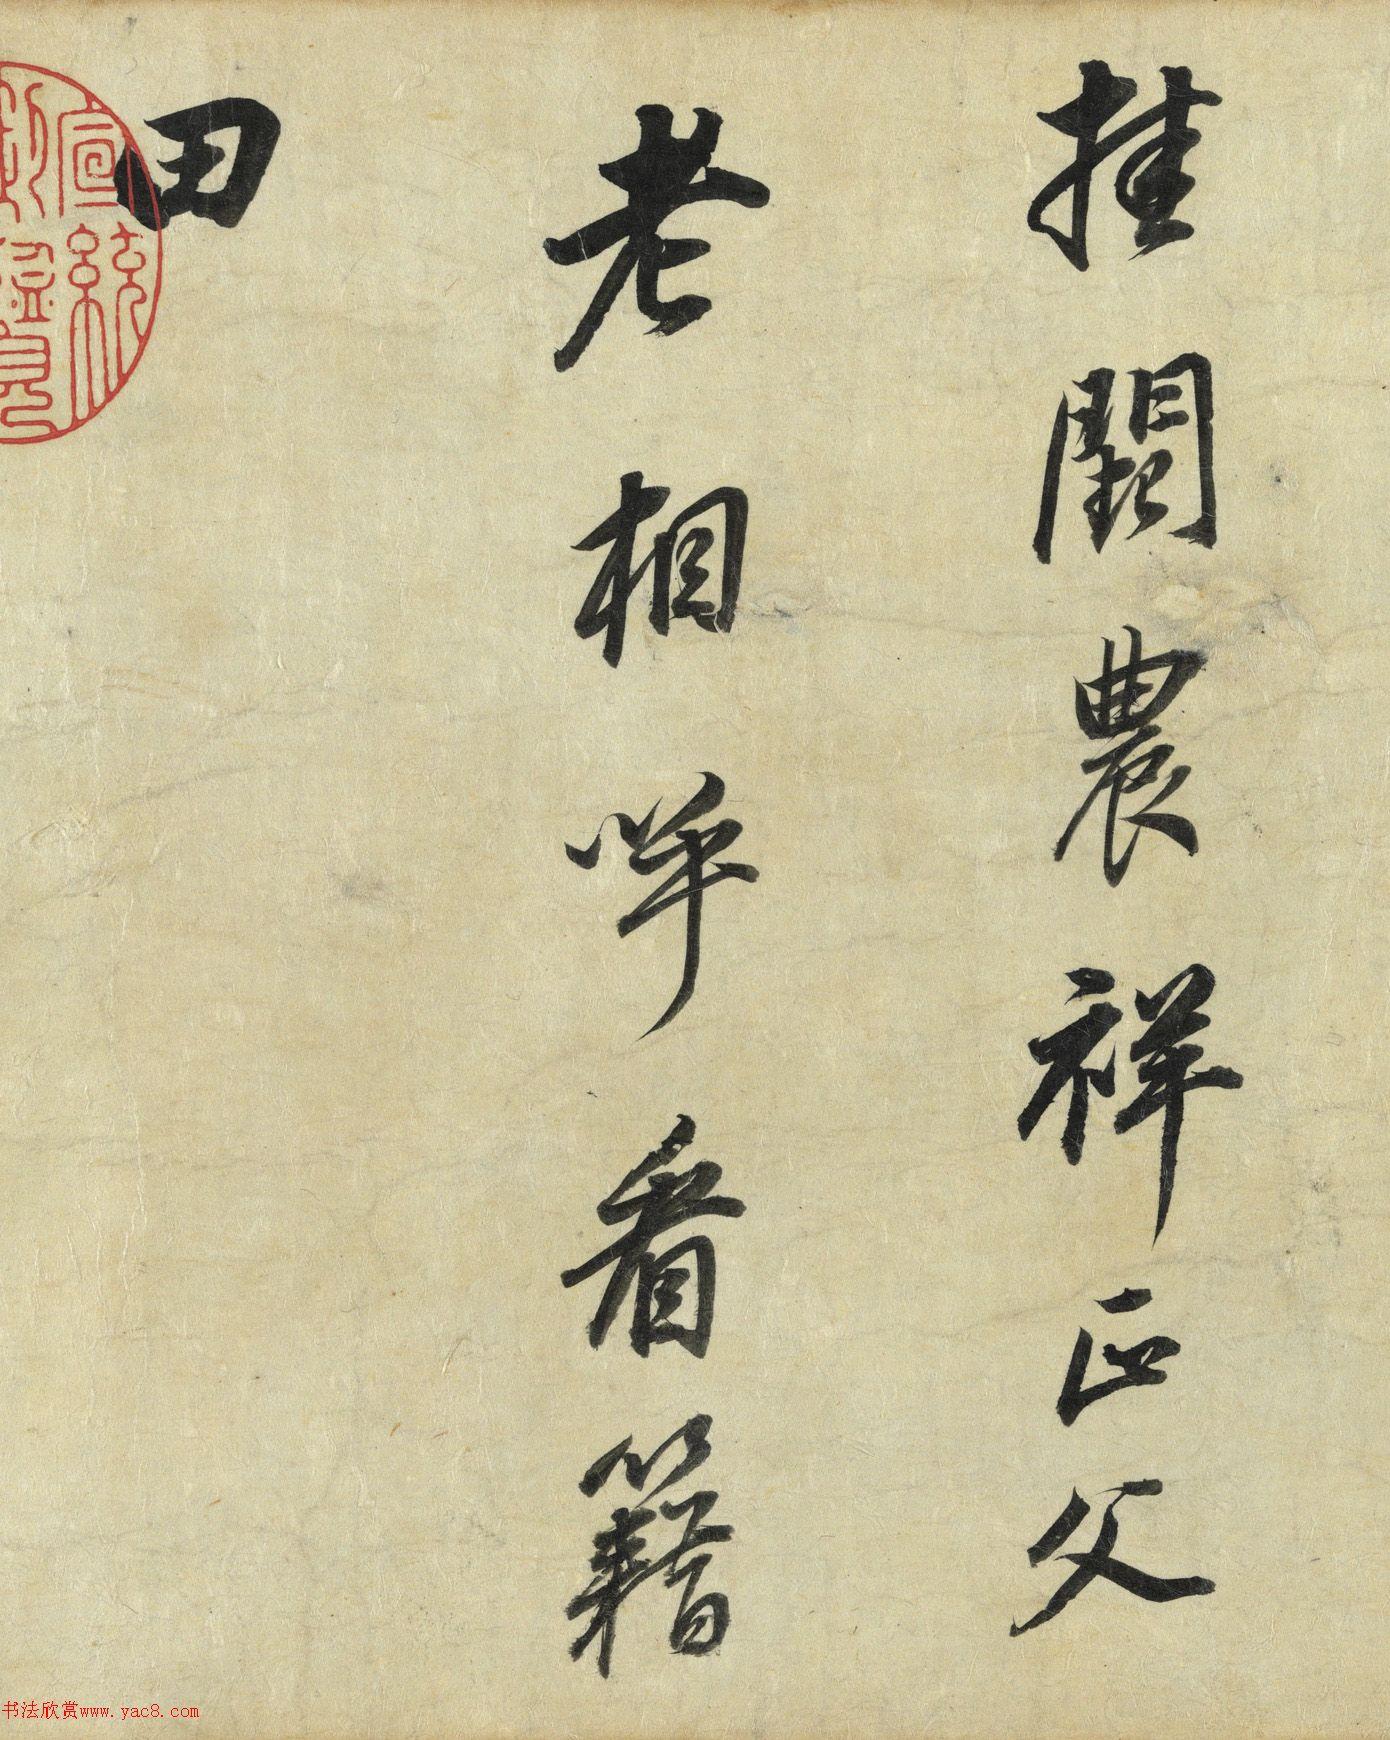 挂闕農祥正父
老相呼看籍
田
宣統御覽
书法欣赏www.yac8.com